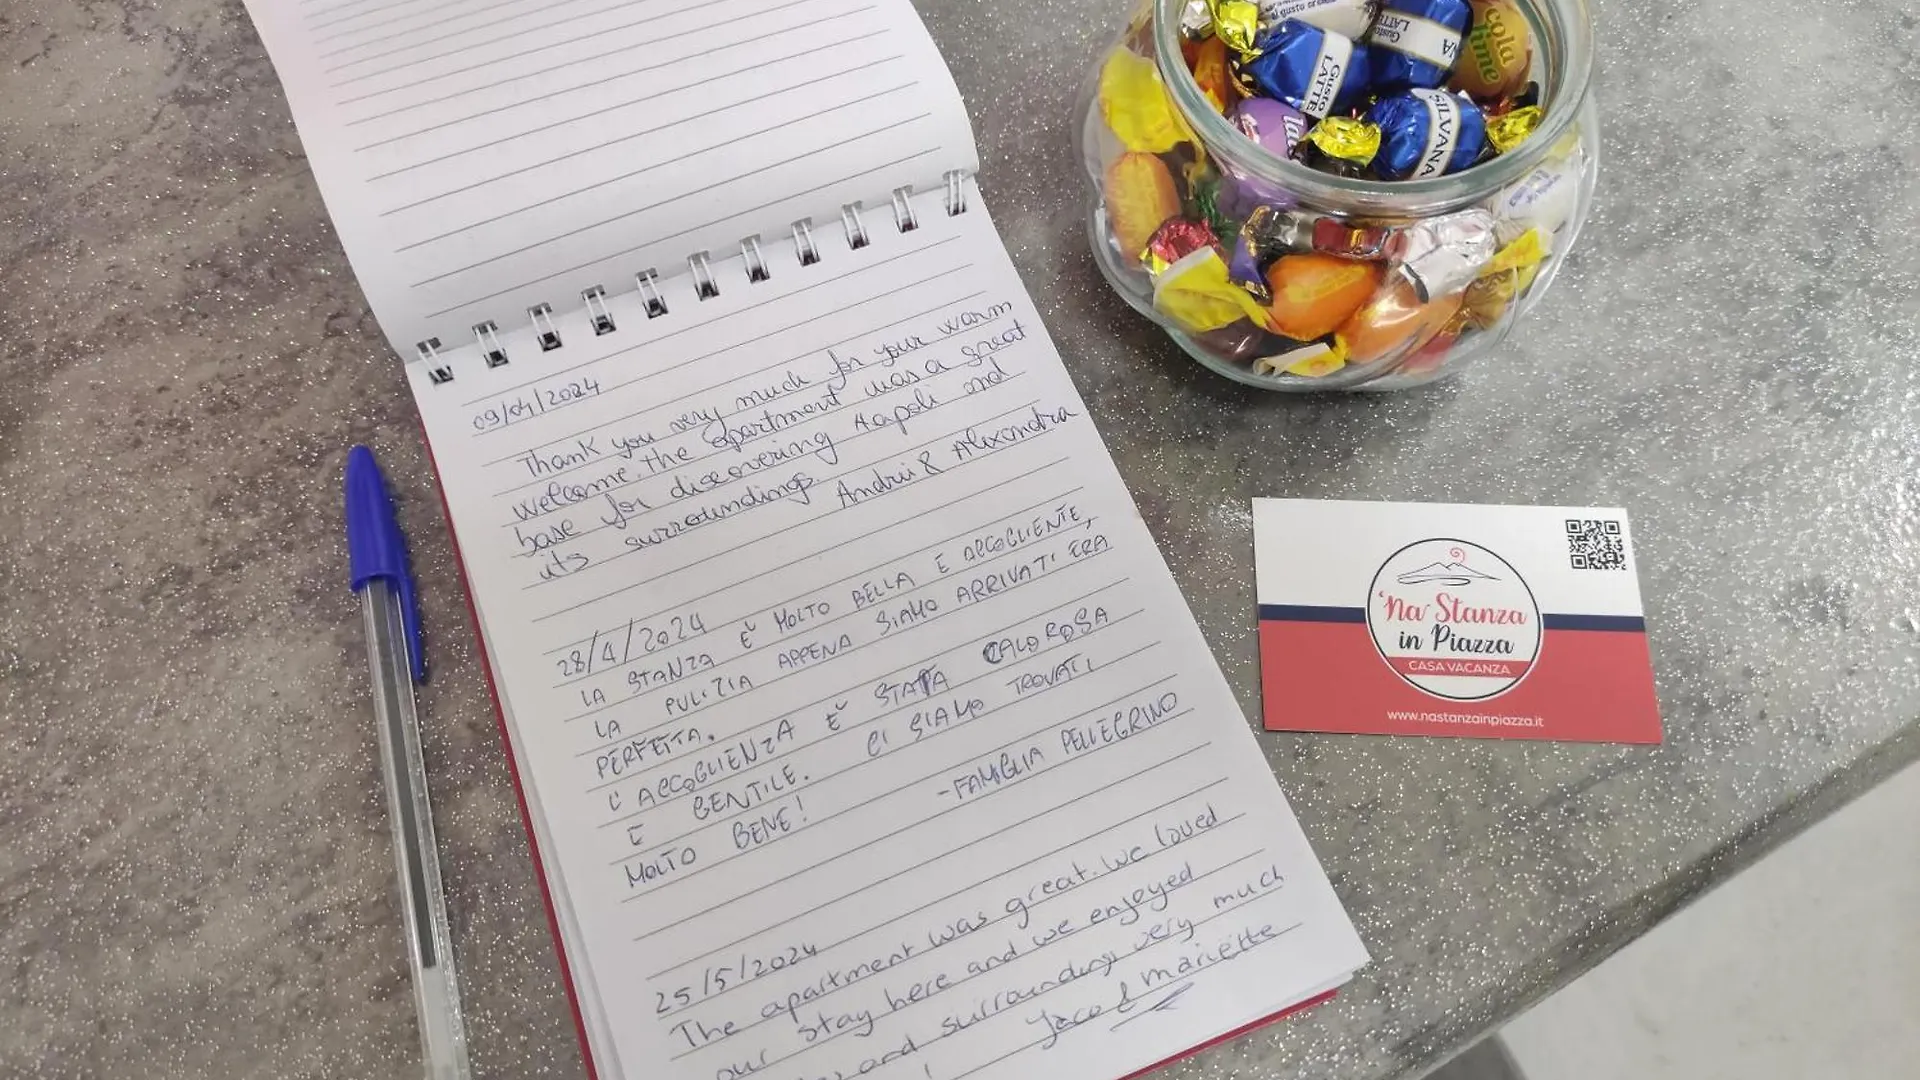 09/04/2024
Thank you very much for your warm
welcome. the apartment was a great
base for discovering Napoli and
its surroundings.
Andrii & Alexandra
28/4/2024
LA STANZA È MOLTO BELLA E ACCOGLIENTE,
LA PULIZIA APPENA SIAMO ARRIVATI ERA
PERFETTA.
L'ACCOGLIENZA È STATA CALOROSA
E GENTILE. CI SIAMO TROVATI
MOLTO BENE!
-FAMIGLIA PELLEGRINO
25/5/2024
The apartment was great. We loved
our stay here and we enjoyed
and surroundings very much
Jaco & Mariette
Gusto
LATTE
Gusto
LATTE
SILVANA
'Na Stanza
in Piazza
CASA VACANZA
www.nastanzainpiazza.it